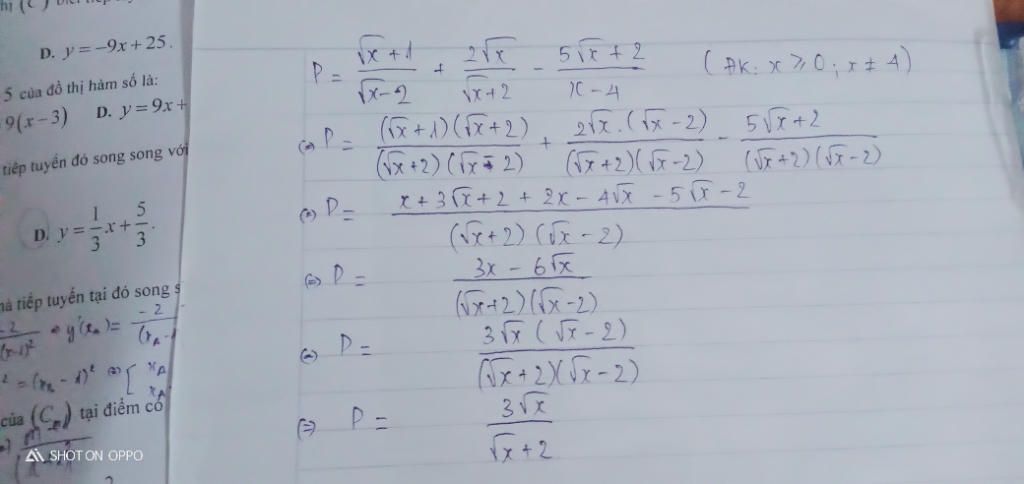 D. y = −9x + 25.
5 của đồ thị hàm số là:
9(x − 3) D. y = 9x +
tiếp tuyến đó song song với
D. y = 1/3 x + 5/3.
à tiếp tuyến tại đó song s
y'(x_A) = −2/(x_A −
= (x_A − 1)² ⇔ [ x_A
x_A
của (C_m) tại điểm có
SHOT ON OPPO
P = (√x + 1)/(√x − 2) + 2√x/(√x + 2) − (5√x + 2)/(x − 4) (ĐK: x ≥ 0; x ≠ 4)
⇔ P = (√x + 1)(√x + 2)/(√x + 2)(√x − 2) + 2√x.(√x − 2)/(√x + 2)(√x − 2) − (5√x + 2)/(√x + 2)(√x − 2)
⇔ P = (x + 3√x + 2 + 2x − 4√x − 5√x − 2)/(√x + 2)(√x − 2)
⇔ P = (3x − 6√x)/(√x + 2)(√x − 2)
⇔ P = 3√x(√x − 2)/(√x + 2)(√x − 2)
⇔ P = 3√x/(√x + 2)